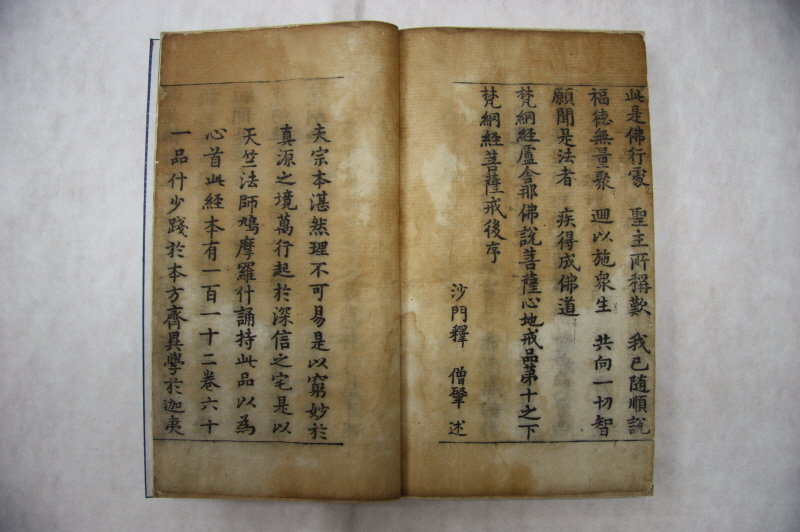 此是佛行處 聖主所稱歎 我已隨順說
福德無量聚 迴以施衆生 共向一切智
願聞是法者 疾得成佛道
梵網經盧舍那佛說菩薩心地戒品第十之下
梵網經菩薩戒後序
沙門釋 僧肇 述
夫宗本湛然理不可易是以窮妙於
真源之境萬行起於深信之宅是以
天竺法師鳩摩羅什誦持此品以為
心首此經本有一百一十二卷六十
一品什少踐於本方齊異學於迦夷